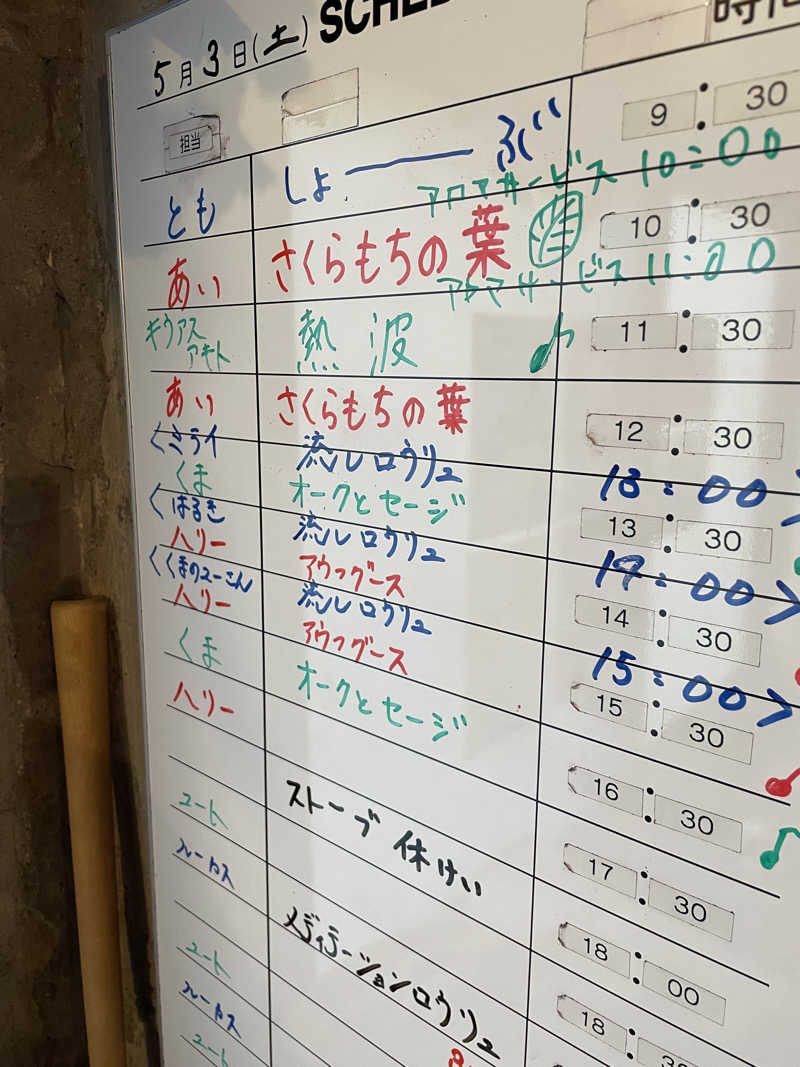 5月3日(土) SCHE
時間
担当
とも しょ ぶ 9:30
アロマサービス 10:00
あい さくらもちの葉 10:30
アロマサービス 11:00
キウアス アキト 熱波 11:30
あい さくらもちの葉 12:30
くミライ 流しロウリュ 13:00
くま オークとセージ 13:30
くはるき 流しロウリュ 14:00
ハリー アウフグース 14:30
くくまのユーこん 流しロウリュ 15:00
ハリー アウフグース 15:30
くま オークとセージ 16:30
ハリー 17:30
ストーブ 休けい 18:00
ユート 18:30
ルーカス
メディテーションロウリュ
ユート
ルーカス
ユート